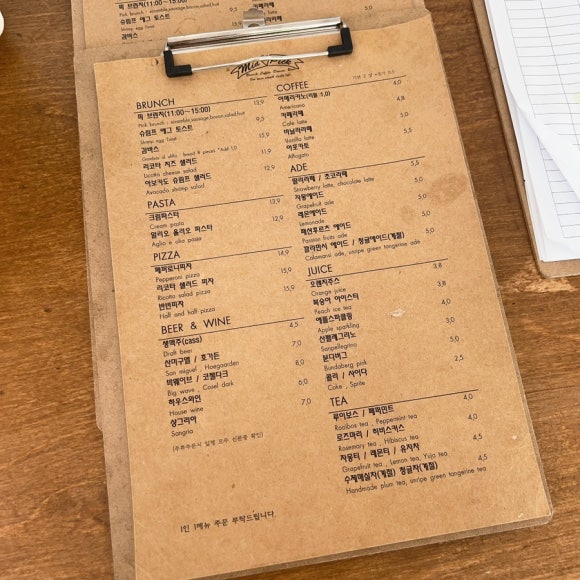 픽 브런치(11:00~15:00)
Pick brunch : scramble,sausage,bacon,salad,fruit
슈림프 에그 토스트 9,5
Shrimp egg toast
감바스 15,9
Mid Pick
BRUNCH
픽 브런치(11:00~15:00) 13,9
Pick brunch : scramble,sausage,bacon,salad,fruit
슈림프 에그 토스트 9,5
Shrimp egg toast
감바스 15,9
Gambas al ajillo , bread 6 pieces *Add 1,0
리코타 치즈 샐러드 11,9
Ricotta cheese salad
아보카도 슈림프 샐러드 12,9
Avocado shrimp salad
PASTA
크림파스타 13,9
Cream pasta
알리오 올리오 파스타 12,9
Aglio e olio pasta
PIZZA
페퍼로니피자 14,9
Pepperoni pizza
리코타 샐러드 피자 15,9
Ricotta salad pizza
반반피자 15,9
Half and half pizza
BEER & WINE
생맥주(cass) 4,5
Draft beer
산미구엘 / 호가든 7,0
San miguel , Hoegaarden
빅웨이브 / 코젤다크 8,0
Big wave , Cosel dark
하우스와인 6,0
House wine
상그리아 7,0
Sangria
1인 1메뉴 주문 부탁드립니다.
COFFEE
아메리카노(리필 1,0) 4,0
Americano
카페라떼 4,8
Cafe latte
바닐라라떼 5,5
Vanilla latte
아포카토 5,5
Affogato
ADE
딸기라떼 / 초코라떼 5,5
Strawberry latte, chocolate latte
자몽에이드 5,0
Grapefruit ade
레몬에이드 5,0
Lemonade
패션후르츠 에이드 5,0
Passion fruits ade
깔라만시 에이드 / 청귤에이드(계절) 5,0
Calamansi ade, unripe green tangerine ade
JUICE
오렌지주스 3,8
Orange juice
복숭아 아이스티 3,8
Peach ice tea
애플스파클링 4,0
Apple sparkling
산펠레그리노 3,0
Sanpellegrino
분다버그 5,0
Bundaberg pink
콜라 / 사이다 2,5
Coke , Sprite
TEA
루이보스 / 페퍼민트 4,0
Rooibos tea , Peppermint tea
로즈마리 / 히비스커스 4,0
Rosemary tea , Hibiscus tea
자몽티 / 레몬티 / 유자차 4,5
Grapefruit tea , Lemon tea, Yuja tea
수제매실차(계절) 청귤차(계절) 4,5
Handmade plum tea, unripe green tangerine tea